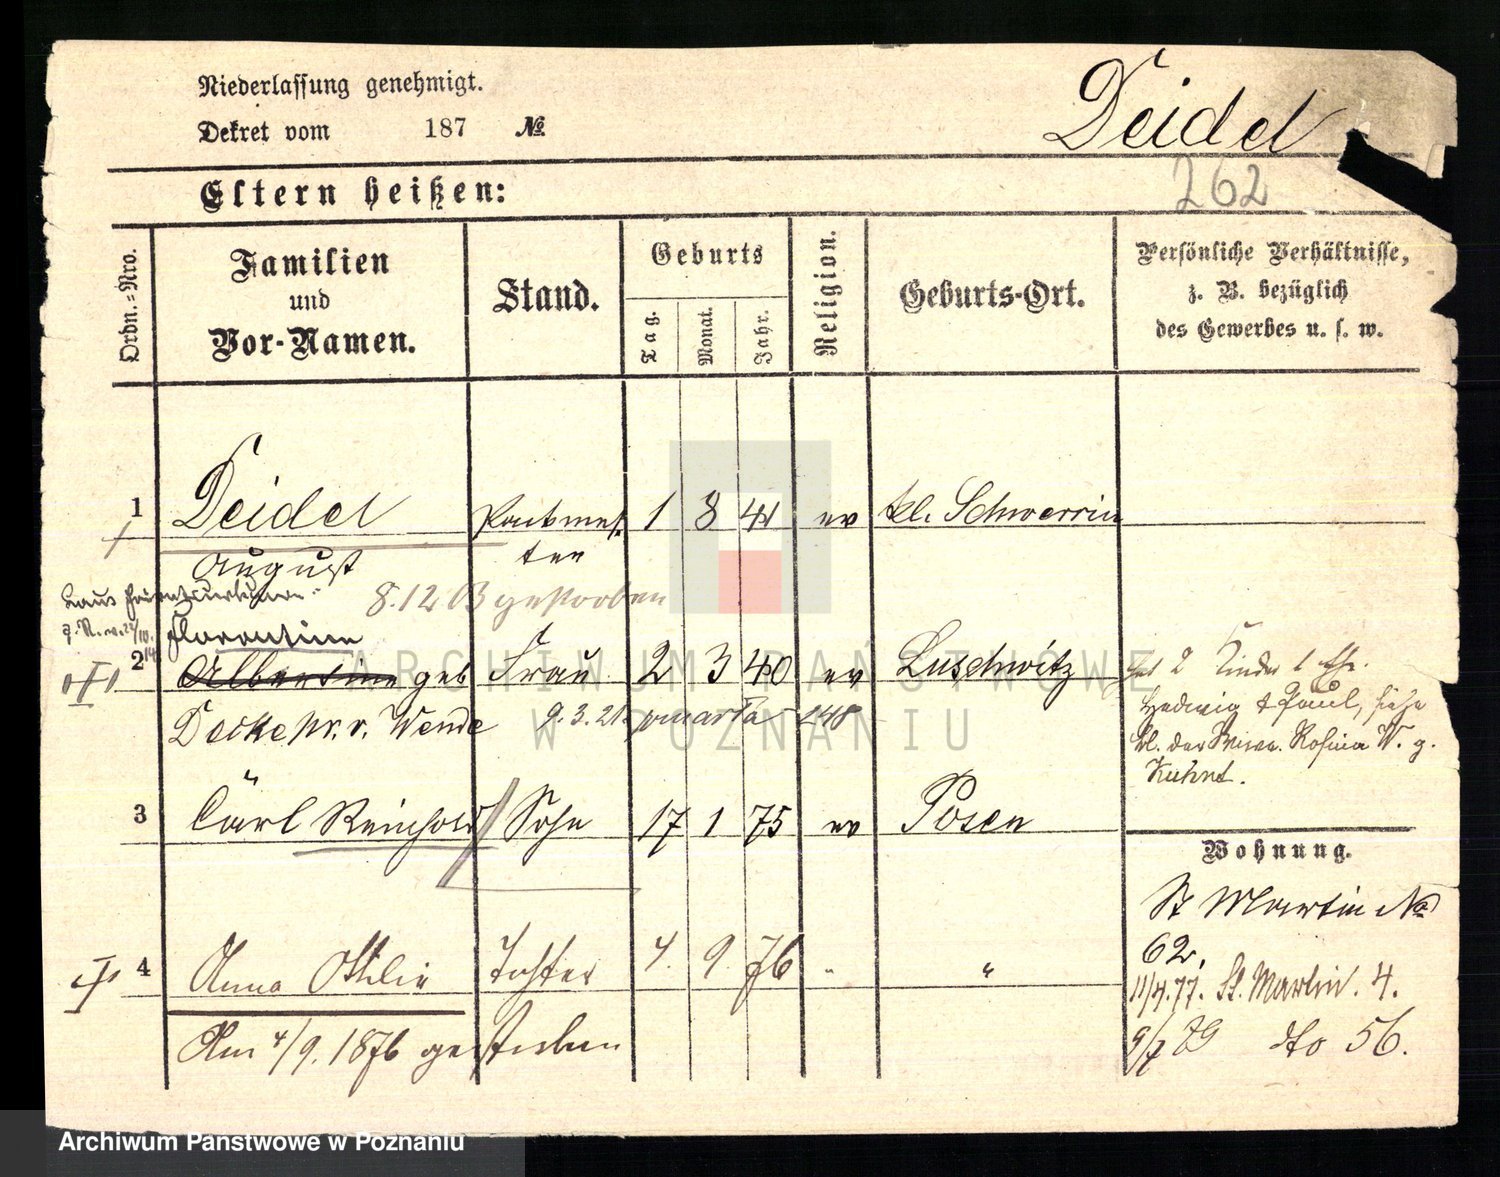 Niederlassung genehmigt.
Dekret vom 187 №
Deidel
262
Eltern heißen:
Ordn.-Nro.
Familien
und
Vor-Namen.
Stand.
Geburts
Tag.
Monat.
Jahr.
Religion.
Geburts-Ort.
Persönliche Verhältnisse,
z. B. bezüglich
des Gewerbes u. s. w.
1 Deidel 1 8 41 ev kl. Schwerrin
August
8.12 03 gestorben
Florentine
2 Albertine geb Frau 2 3 40 ev Luschwitz
Decke pr. v. Wende 9.3.21
hat 2 Kinder 1 Ehe.
Hedwig & Paul, siehe
bl. der Rosina W. g.
Kuhnt.
3 Carl Reinhold Sohn 17 1 75 ev Posen
Wohnung.
St Martin No
62.
4 Anna Ottilie Tochter 4. 9. 76 " "
11/4.77. St. Martin. 4.
Am 4/9. 1876 gestorben
9/7 79 dto 56.
ARCHIWUM PAŃSTWOWE
W POZNANIU
Archiwum Państwowe w Poznaniu